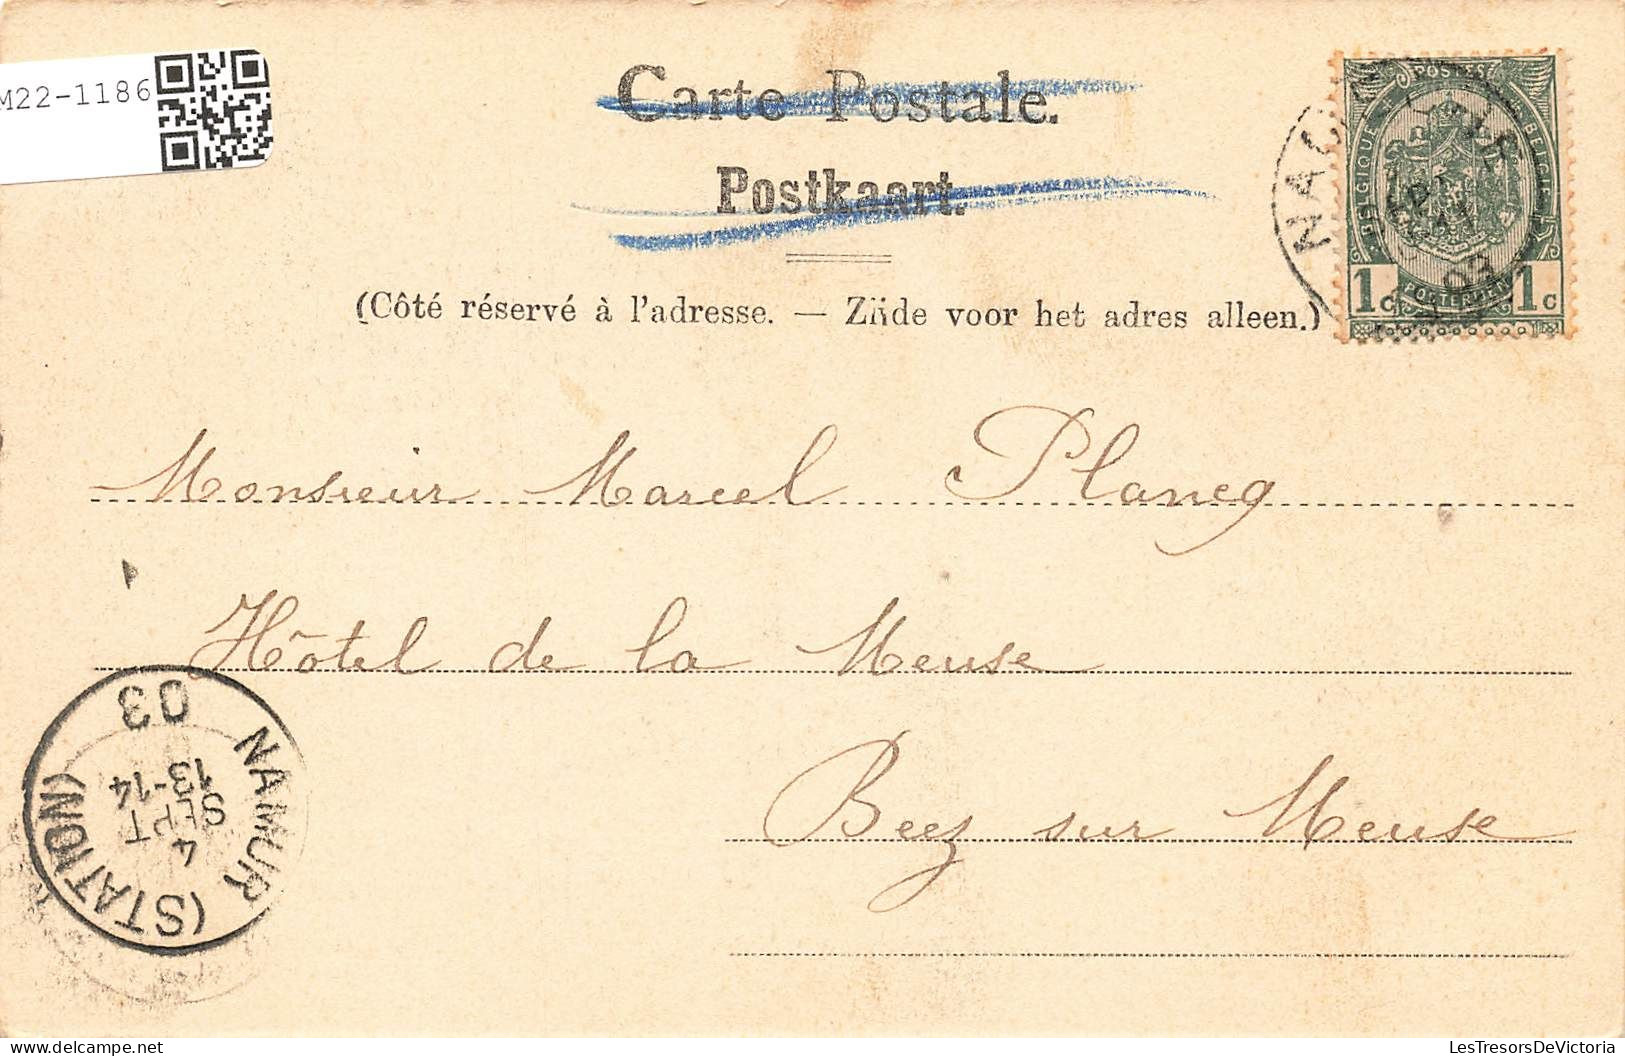 M22-1186
Carte Postale.
Postkaart.
(Côté réservé à l'adresse. — Zijde voor het adres alleen.)
POSTES
BELGIQUE
BELGIË
POSTERIJEN
1c 1c
Monsieur Marcel Plancq
Hôtel de la Meuse
Beez sur Meuse
NAMUR (STATION)
4
SEPT
13-14
03
LesTresorsDeVictoria